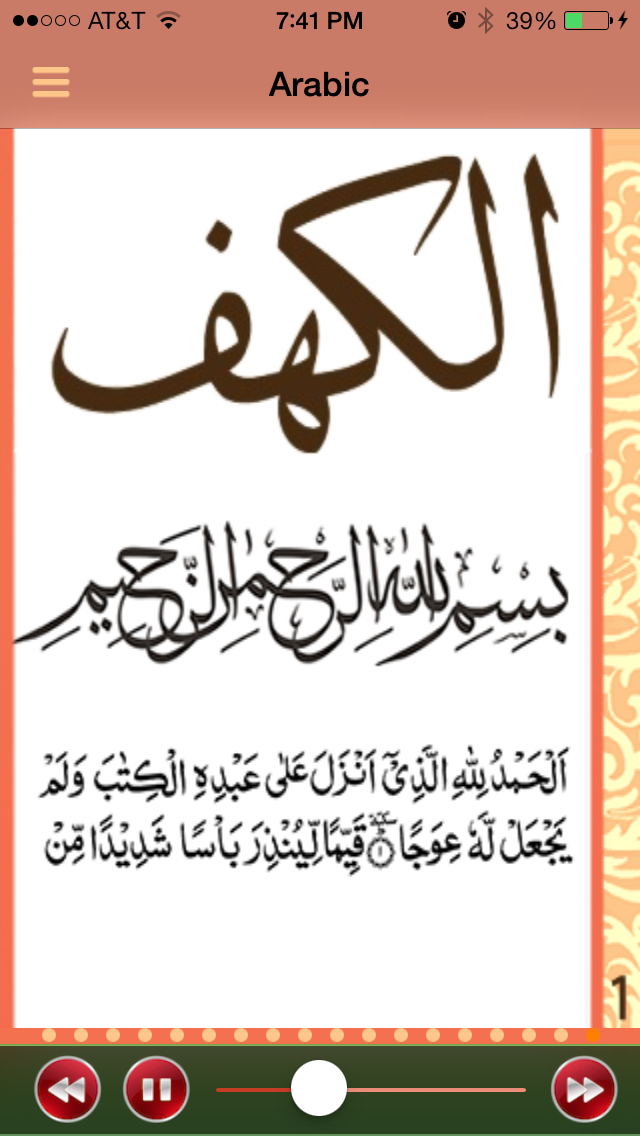 AT&T 7:41 PM 39%
Arabic
الكهف
بِسْمِ اللهِ الرَّحْمٰنِ الرَّحِيْمِ
اَلْحَمْدُ لِلّٰهِ الَّذِىْٓ اَنْزَلَ عَلٰى عَبْدِهِ الْكِتٰبَ وَلَمْ
يَجْعَلْ لَّهٗ عِوَجًا ۜ ۝١ قَيِّمًا لِّيُنْذِرَ بَاْسًا شَدِيْدًا مِّنْ
1